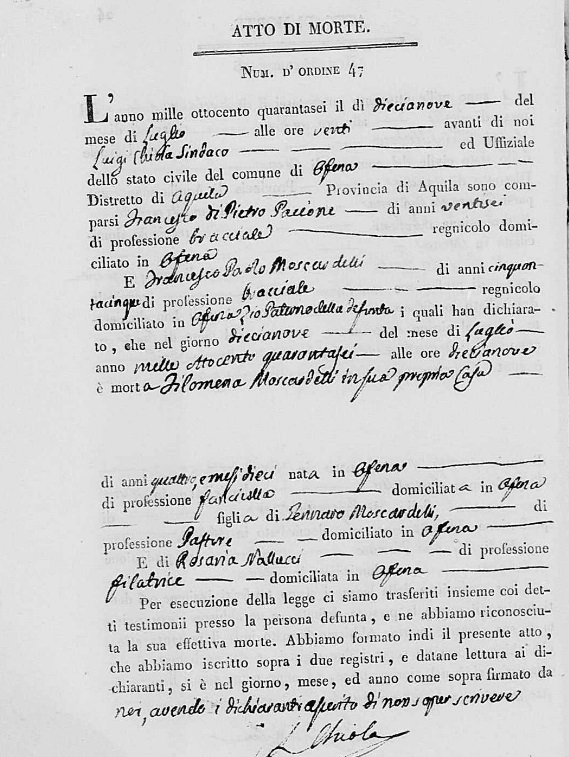 ATTO DI MORTE.
NUM. D' ORDINE 47
L'anno mille ottocento quarantasei il dì diecianove del
mese di Luglio alle ore venti avanti di noi
Luigi Chiola Sindaco ed Uffiziale
dello stato civile del comune di Ofena
Distretto di Aquila Provincia di Aquila sono com-
parsi Francesco di Pietro Paccione di anni ventisei
di professione bracciale regnicolo domi-
ciliato in Ofena
E Francesco Paolo Moscardelli di anni cinquan-
tacinque di professione bracciale regnicolo
domiciliato in Ofena Zio Paterno della defunta i quali han dichiara-
to, che nel giorno diecianove del mese di Luglio
anno mille ottocento quarantasei alle ore diecianove
è morta Filomena Moscardelli in sua propria Casa
di anni quattro, e mesi dieci nata in Ofena
di professione fanciulla domiciliata in Ofena
figlia di Gennaro Moscardelli, di
professione Pastore domiciliato in Ofena
E di Rosaria Vallucci di professione
filatrice domiciliata in Ofena
Per esecuzione della legge ci siamo trasferiti insieme coi det-
ti testimonii presso la persona defunta, e ne abbiamo riconosciu-
ta la sua effettiva morte. Abbiamo formato indi il presente atto,
che abbiamo iscritto sopra i due registri, e datane lettura ai di-
chiaranti, si è nel giorno, mese, ed anno come sopra firmato da
noi, avendo i dichiaranti asserito di non saper scrivere
L Chiola